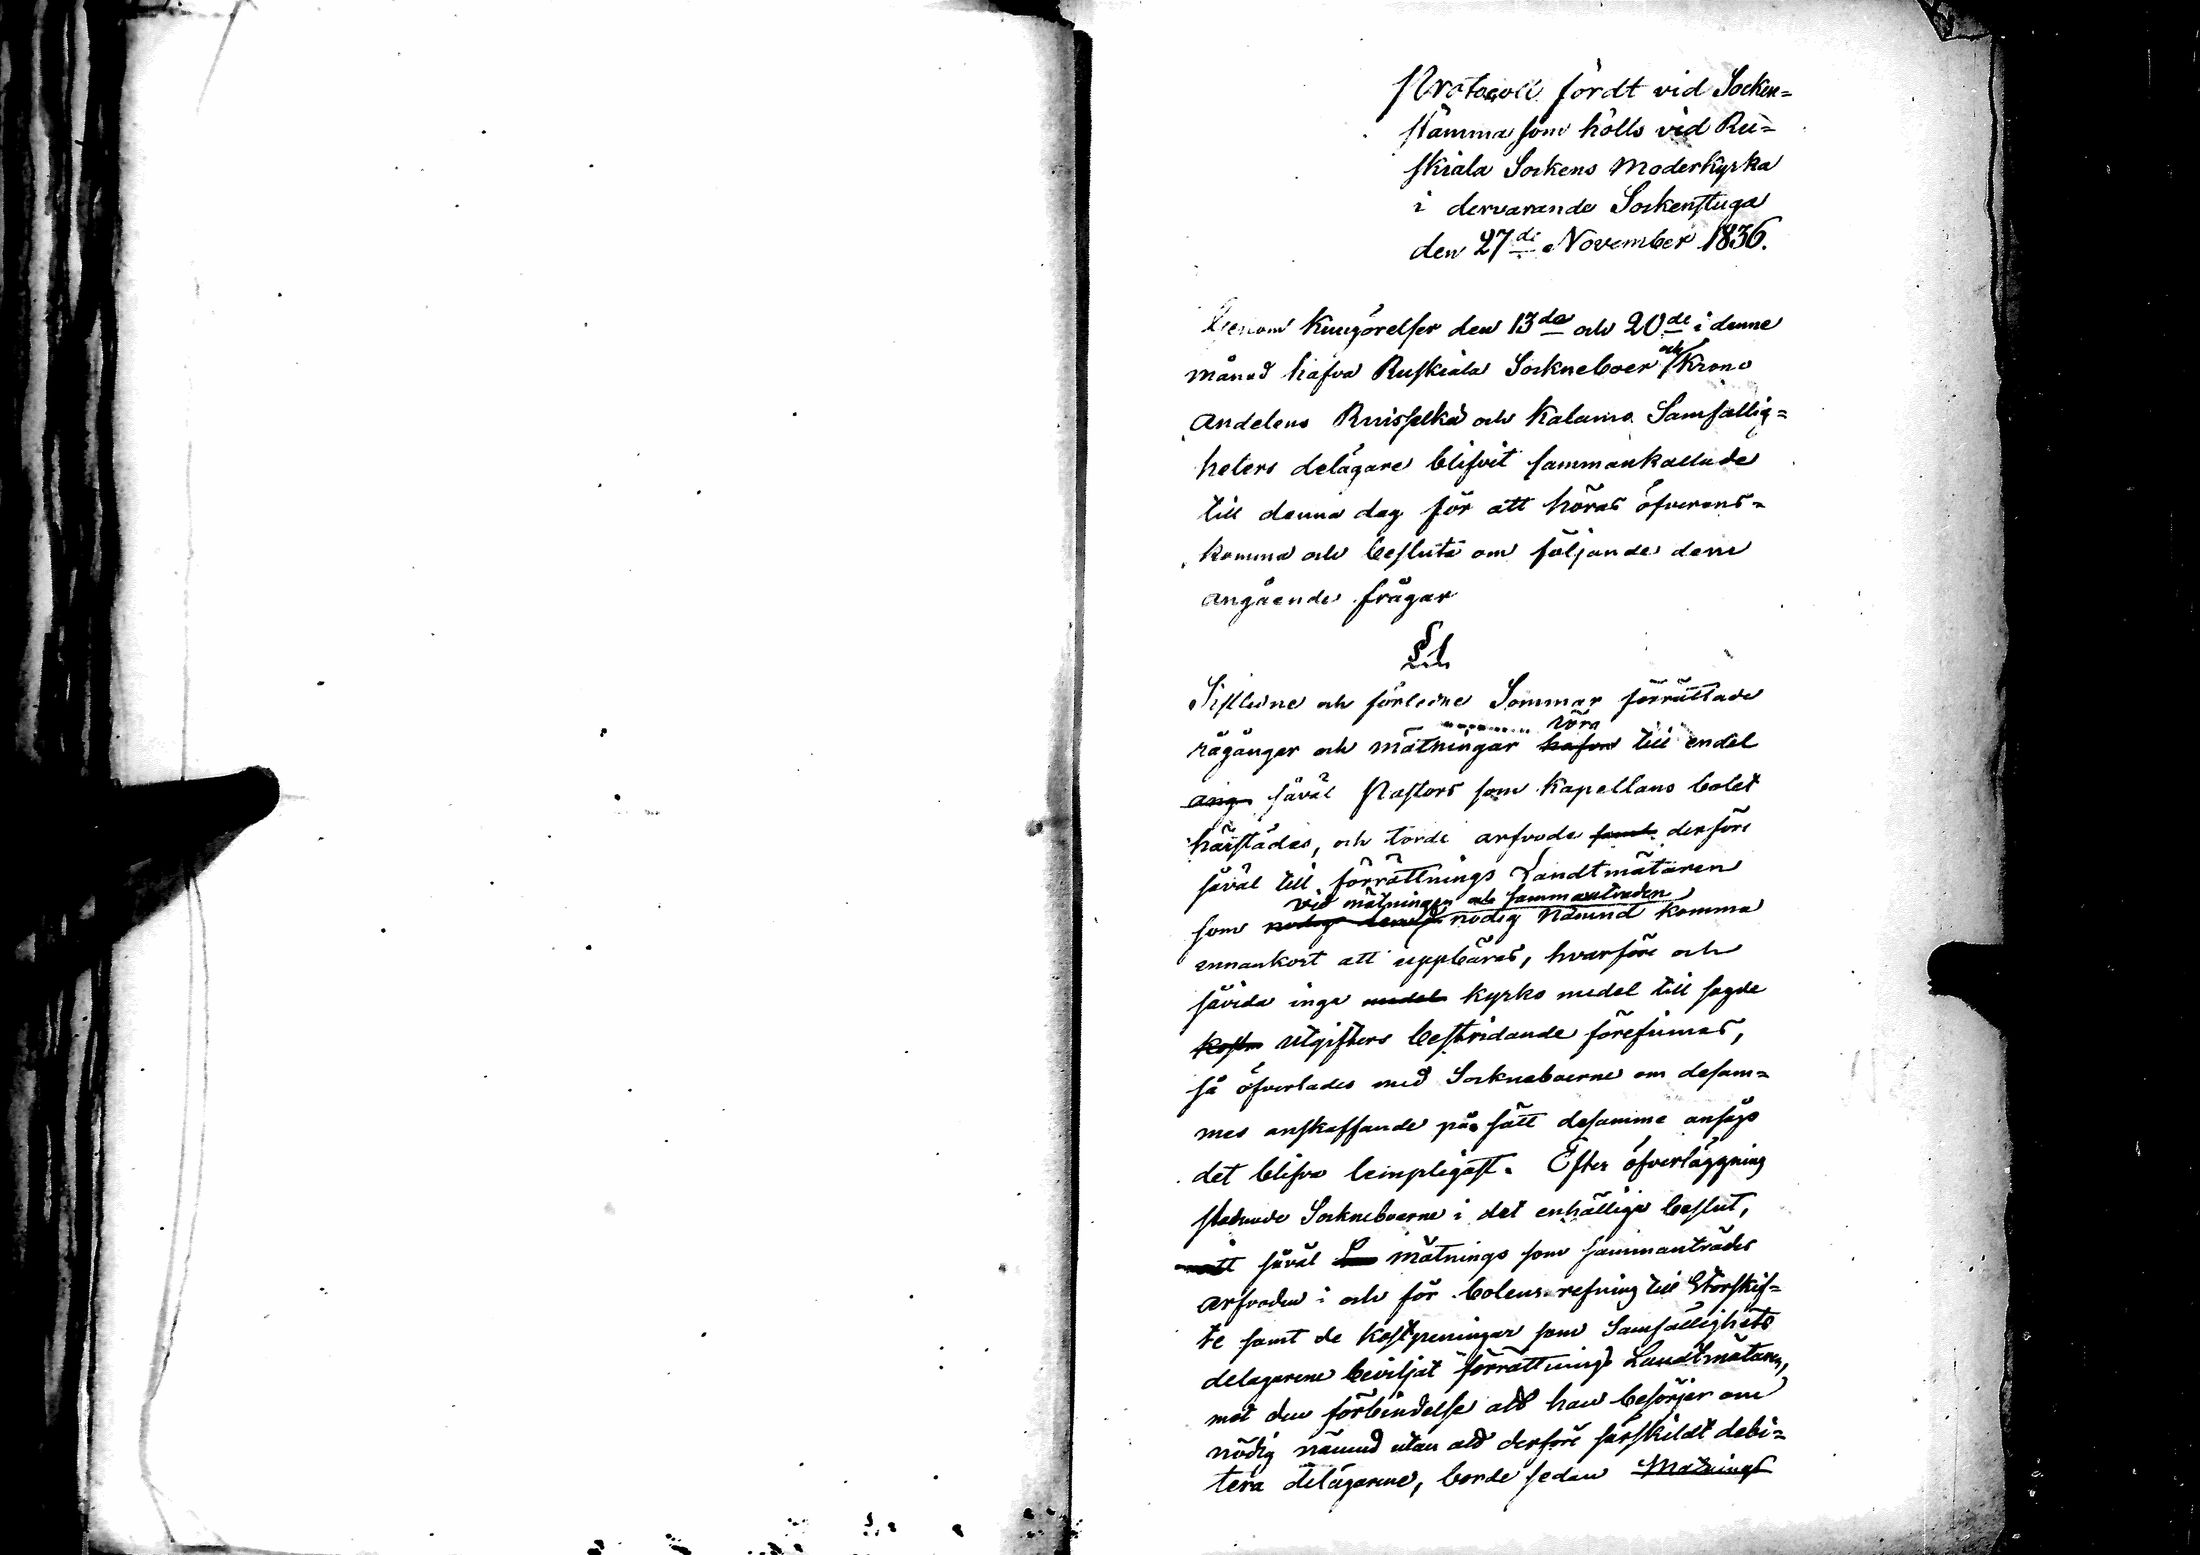 Protocoll fördt vid Socken=
stämma som hölls vid Ru=
skiala Sockens Moderkyrka
i dervarande Sockenstuga
den 27de November 1836.
Genom Kungörelser den 13de och 20de i denne
månad hafva Ruskiala Sockneboer och Krono
Andelens Ruisselkä och Kalamo Samfällig=
heters delägare blifvit sammankallade
till denna dag för att höras öfverens=
komma och besluta om följande dem
angående frågar
§ 1
Sistledne och förledne Sommar förrättade
rågångar och mätningar hafva röra till endel
ang såväl Pastors som Kapellans bolet
härstädes, och torde arfvode derföre
såväl till förrättnings Landtmätaren
vid mätningen och sammanträden
som nödig nämnd komma
ennankort att uppbäras, hvarföre och
såvida inga medel kyrko medel till sagde
kostn utgifters bestridande förefinnas,
så öfverlades med Sockneboerne om desam=
mes anskaffande på sätt desamme ansågo
det blifva lempligast. Efter öfverläggning
stadnade Sockneboerne i det enhällige beslut,
att såväl mätnings som sammanträdes
arfvoden i och för bolens refning till Storskif=
te samt de kostpenningar som Samfällighets
delagarene beviljat förrättnings Landtmätaren,
mot den förbindelse att han besörjer om
nödig nämnd utan att derföre särskildt debi=
tera delägarene, borde sedan Mätnings